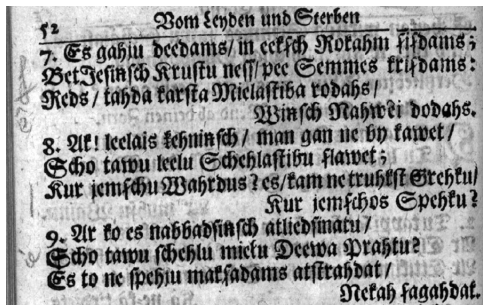 52 Vom Leyden und Sterben
7. Es gahju deedams / in eekſch Rokahm ſiſdams;
Bet Jeſinſch Kruſtu neſſ / pee Semmes kriſdams:
Reds / tahda karſta Mielaſtiba rodahs /
Winſch Nahwei dodahs.
8. Ak! leelais kehninſch / man gan ne by kawet /
Scho tawu leelu Schehlaſtibu ſlawet;
Kur jemſchu Wahrdus? es / kam ne truhkſt Grehku /
Kur jemſchos Spehku?
9. Ar ko es nabbadſinſch atliedſinatu /
Scho tawu ſchehlu mieku Deewa Prahtu?
Es to ne ſpehju makſadams atſtrahdat /
Nekah ſagahdat.